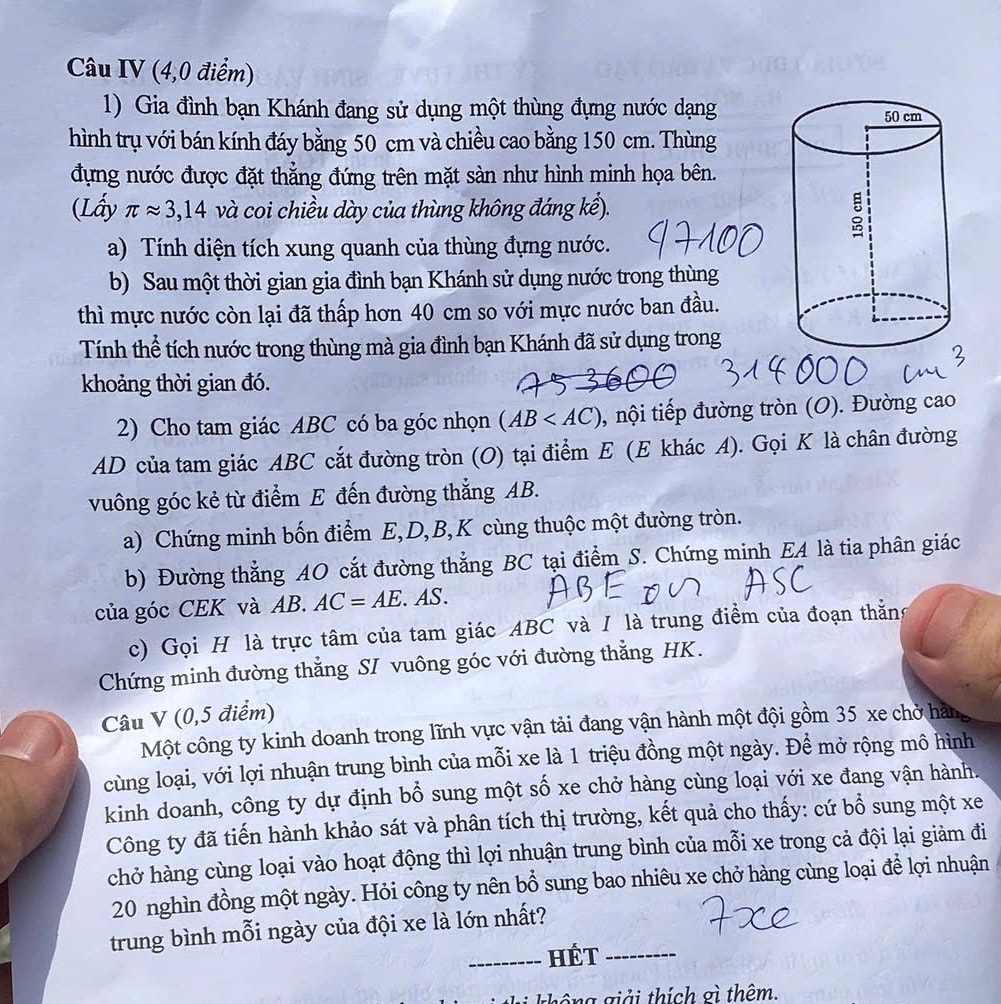 Câu IV (4,0 điểm)
1) Gia đình bạn Khánh đang sử dụng một thùng đựng nước dạng
hình trụ với bán kính đáy bằng 50 cm và chiều cao bằng 150 cm. Thùng
đựng nước được đặt thẳng đứng trên mặt sàn như hình minh họa bên.
(Lấy π ≈ 3,14 và coi chiều dày của thùng không đáng kể).
50 cm
150 cm
a) Tính diện tích xung quanh của thùng đựng nước. 47100
b) Sau một thời gian gia đình bạn Khánh sử dụng nước trong thùng
thì mực nước còn lại đã thấp hơn 40 cm so với mực nước ban đầu.
Tính thể tích nước trong thùng mà gia đình bạn Khánh đã sử dụng trong
khoảng thời gian đó. 753600 314000 cm³
2) Cho tam giác ABC có ba góc nhọn (AB < AC), nội tiếp đường tròn (O). Đường cao
AD của tam giác ABC cắt đường tròn (O) tại điểm E (E khác A). Gọi K là chân đường
vuông góc kẻ từ điểm E đến đường thẳng AB.
a) Chứng minh bốn điểm E,D,B,K cùng thuộc một đường tròn.
b) Đường thẳng AO cắt đường thẳng BC tại điểm S. Chứng minh EA là tia phân giác
của góc CEK và AB. AC = AE. AS. ABE ∽ ASC
c) Gọi H là trực tâm của tam giác ABC và I là trung điểm của đoạn thẳng
Chứng minh đường thẳng SI vuông góc với đường thẳng HK.
Câu V (0,5 điểm)
Một công ty kinh doanh trong lĩnh vực vận tải đang vận hành một đội gồm 35 xe chở hàng
cùng loại, với lợi nhuận trung bình của mỗi xe là 1 triệu đồng một ngày. Để mở rộng mô hình
kinh doanh, công ty dự định bổ sung một số xe chở hàng cùng loại với xe đang vận hành.
Công ty đã tiến hành khảo sát và phân tích thị trường, kết quả cho thấy: cứ bổ sung một xe
chở hàng cùng loại vào hoạt động thì lợi nhuận trung bình của mỗi xe trong cả đội lại giảm đi
20 nghìn đồng một ngày. Hỏi công ty nên bổ sung bao nhiêu xe chở hàng cùng loại để lợi nhuận
trung bình mỗi ngày của đội xe là lớn nhất? 7 xe
--------- HẾT ---------
thi không giải thích gì thêm.